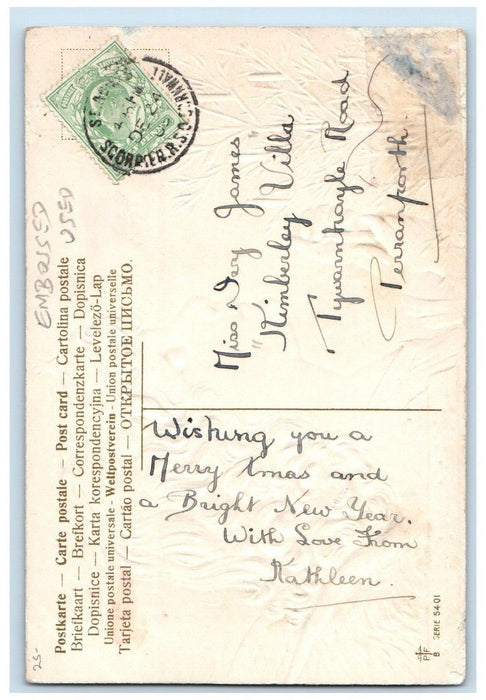 EMBOSSED
USED
Postkarte — Carte postale — Post card — Cartolina postale
Briefkaart — Brefkort — Correspondenzkarte — Dopisnica
Dopisnice — Karta korespondencyjna — Levelező-Lap
Unione postale universale - Weltpostverein - Union postale universelle
Tarjeta postal — Cartão postal — ОТКРЫТОЕ ПИСЬМО.
Miss James
"Kimberley Villa
Tywarnhayle Road
Perranporth.
Wishing you a
Merry Xmas and
a Bright New Year.
With Love From
Kathleen.
SCORRIER.R.S.O. CORNWALL
PF
B
SERIE 5401
25-